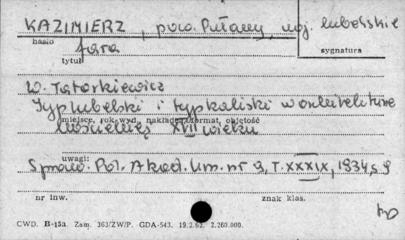 KAZIMIERZ, pow. Puławy, woj. lubelskie
hasło
fara
sygnatura
tytuł
W. Tatarkiewicz
Typ lubelski i typ kaliski w architekturze
miejsce, rok wyd. nakład, format, objętość
kościelnej XVII wieku
uwagi:
Spraw. Pol. Akad. Um. nr 9, T. XXXIX, 1934, s 9
nr inw.
znak klas.
CWD. B-15a. Zam. 363/ZW/P. GDA-543. 19.2.62. 2.260.000.